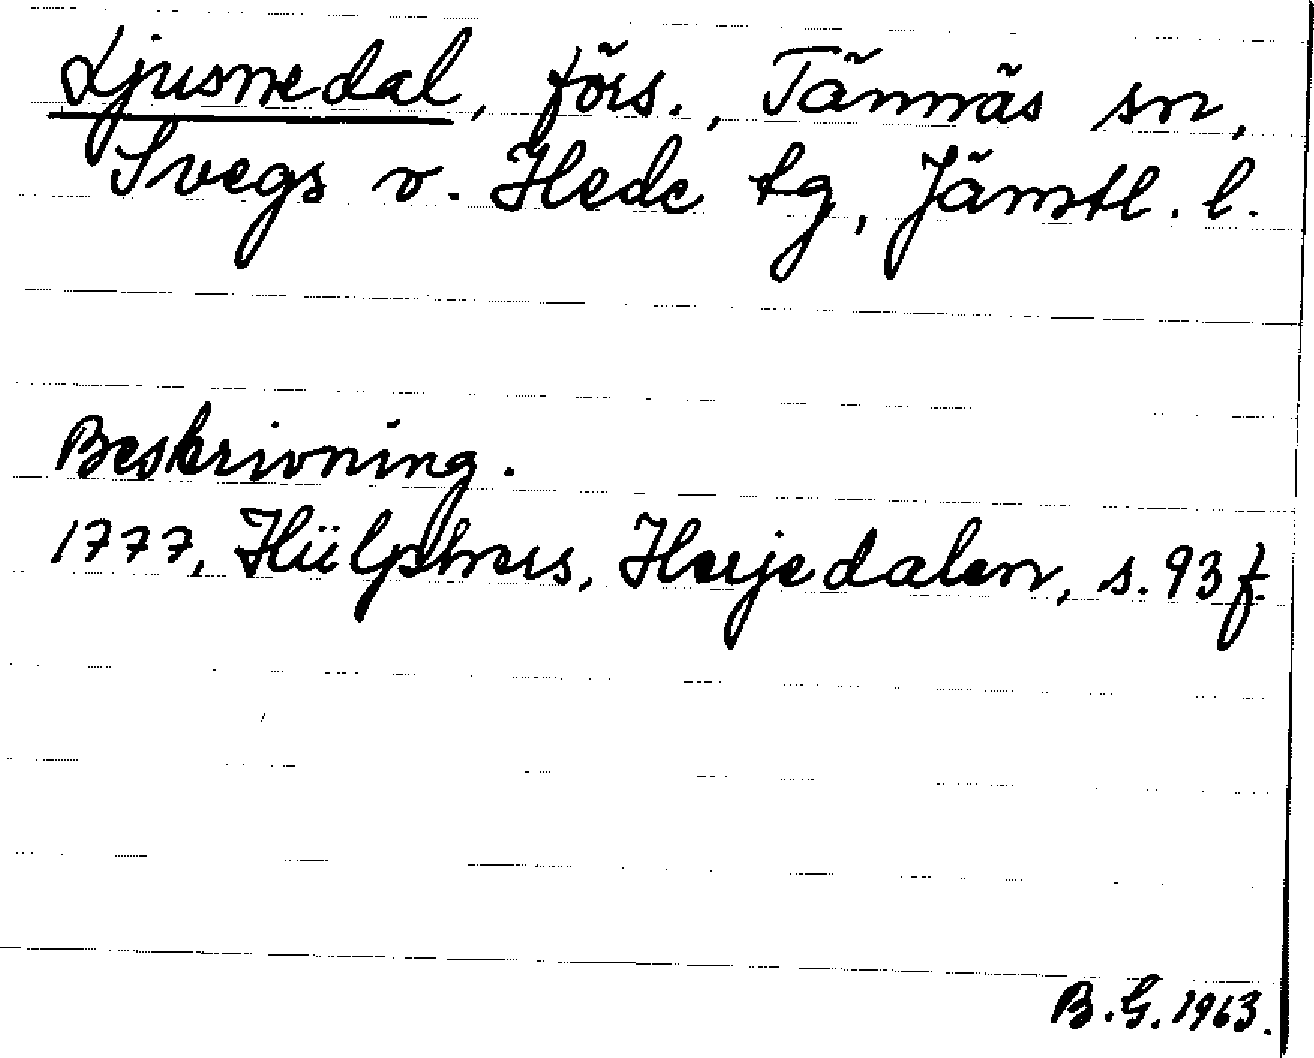 Ljusnedal, förs., Tännäs sn,
Svegs o. Hede tg, Jämtl. l.
Beskrivning.
1777, Hülphers, Herjedalen, s. 93 f.
B.G. 1963.